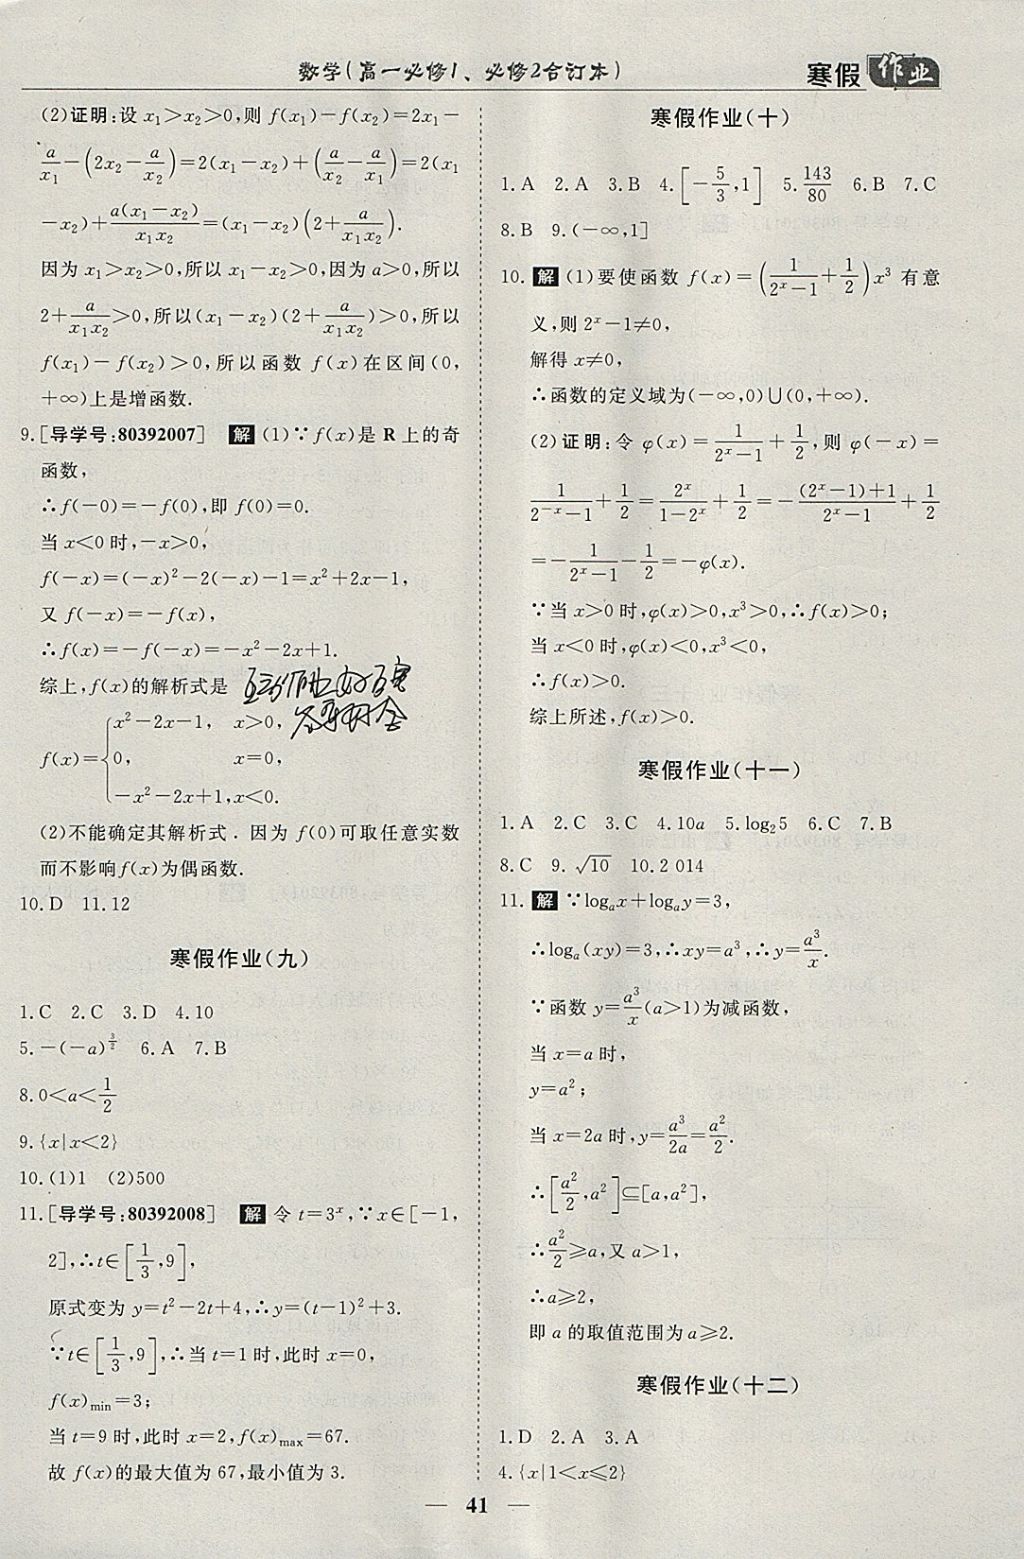 数学(高一必修1、必修2合订本)
寒假作业
(2)证明:设 x₁>x₂>0,则 f(x₁)-f(x₂)=2x₁-
a/x₁-(2x₂-a/x₂)=2(x₁-x₂)+(a/x₂-a/x₁)=2(x₁
-x₂)+a(x₁-x₂)/x₁x₂=(x₁-x₂)(2+a/x₁x₂).
因为 x₁>x₂>0,所以 x₁-x₂>0,因为 a>0,所以
2+a/x₁x₂>0,所以(x₁-x₂)(2+a/x₁x₂)>0,所以
f(x₁)-f(x₂)>0,所以函数 f(x)在区间(0,
+∞)上是增函数.
9.[导学号:80392007] 解 (1)∵f(x)是 R 上的奇
函数,
∴f(-0)=-f(0),即 f(0)=0.
当 x<0 时,-x>0,
f(-x)=(-x)²-2(-x)-1=x²+2x-1,
又 f(-x)=-f(x),
∴f(x)=-f(-x)=-x²-2x+1.
综上,f(x)的解析式是
f(x)={x²-2x-1, x>0,
0, x=0,
-x²-2x+1,x<0.
(2)不能确定其解析式.因为 f(0)可取任意实数
而不影响f(x)为偶函数.
10.D 11.12
寒假作业(九)
1.C 2.C 3.D 4.10
5.-(-a)^(3/2) 6.A 7.B
8.0<a<1/2
9.{x|x<2}
10.(1)1 (2)500
11.[导学号:80392008] 解 令 t=3ˣ,∵x∈[-1,
2],∴t∈[1/3,9],
原式变为 y=t²-2t+4,∴y=(t-1)²+3.
∵t∈[1/3,9],∴当 t=1 时,此时 x=0,
f(x)min=3;
当 t=9 时,此时 x=2,f(x)max=67.
故 f(x)的最大值为 67,最小值为 3.
寒假作业(十)
1.A 2.A 3.B 4.[-5/3,1] 5.143/80 6.B 7.C
8.B 9.(-∞,1]
10.解 (1)要使函数 f(x)=(1/(2ˣ-1)+1/2)x³ 有意
义,则 2ˣ-1≠0,
解得 x≠0,
∴函数的定义域为(-∞,0)∪(0,+∞).
(2)证明:令 φ(x)=1/(2ˣ-1)+1/2,则 φ(-x)=
1/(2⁻ˣ-1)+1/2=2ˣ/(1-2ˣ)+1/2=-((2ˣ-1)+1)/(2ˣ-1)+1/2
=-1/(2ˣ-1)-1/2=-φ(x).
∵当 x>0 时,φ(x)>0,x³>0,∴f(x)>0;
当 x<0 时,φ(x)<0,x³<0,
∴f(x)>0.
综上所述,f(x)>0.
寒假作业(十一)
1.A 2.C 3.C 4.10a 5.log₂5 6.C 7.B
8.C 9.√10 10.2 014
11.解 ∵logₐx+logₐy=3,
∴logₐ(xy)=3,∴xy=a³,∴y=a³/x.
∵函数 y=a³/x(a>1)为减函数,
当 x=a 时,
y=a²;
当 x=2a 时,y=a³/2a=a²/2.
∴[a²/2,a²]⊆[a,a²],
∴a²/2≥a,又 a>1,
∴a≥2,
即 a 的取值范围为a≥2.
寒假作业(十二)
1.D 2.A 3.A
4.{x|1<x≤2}
— 41 —